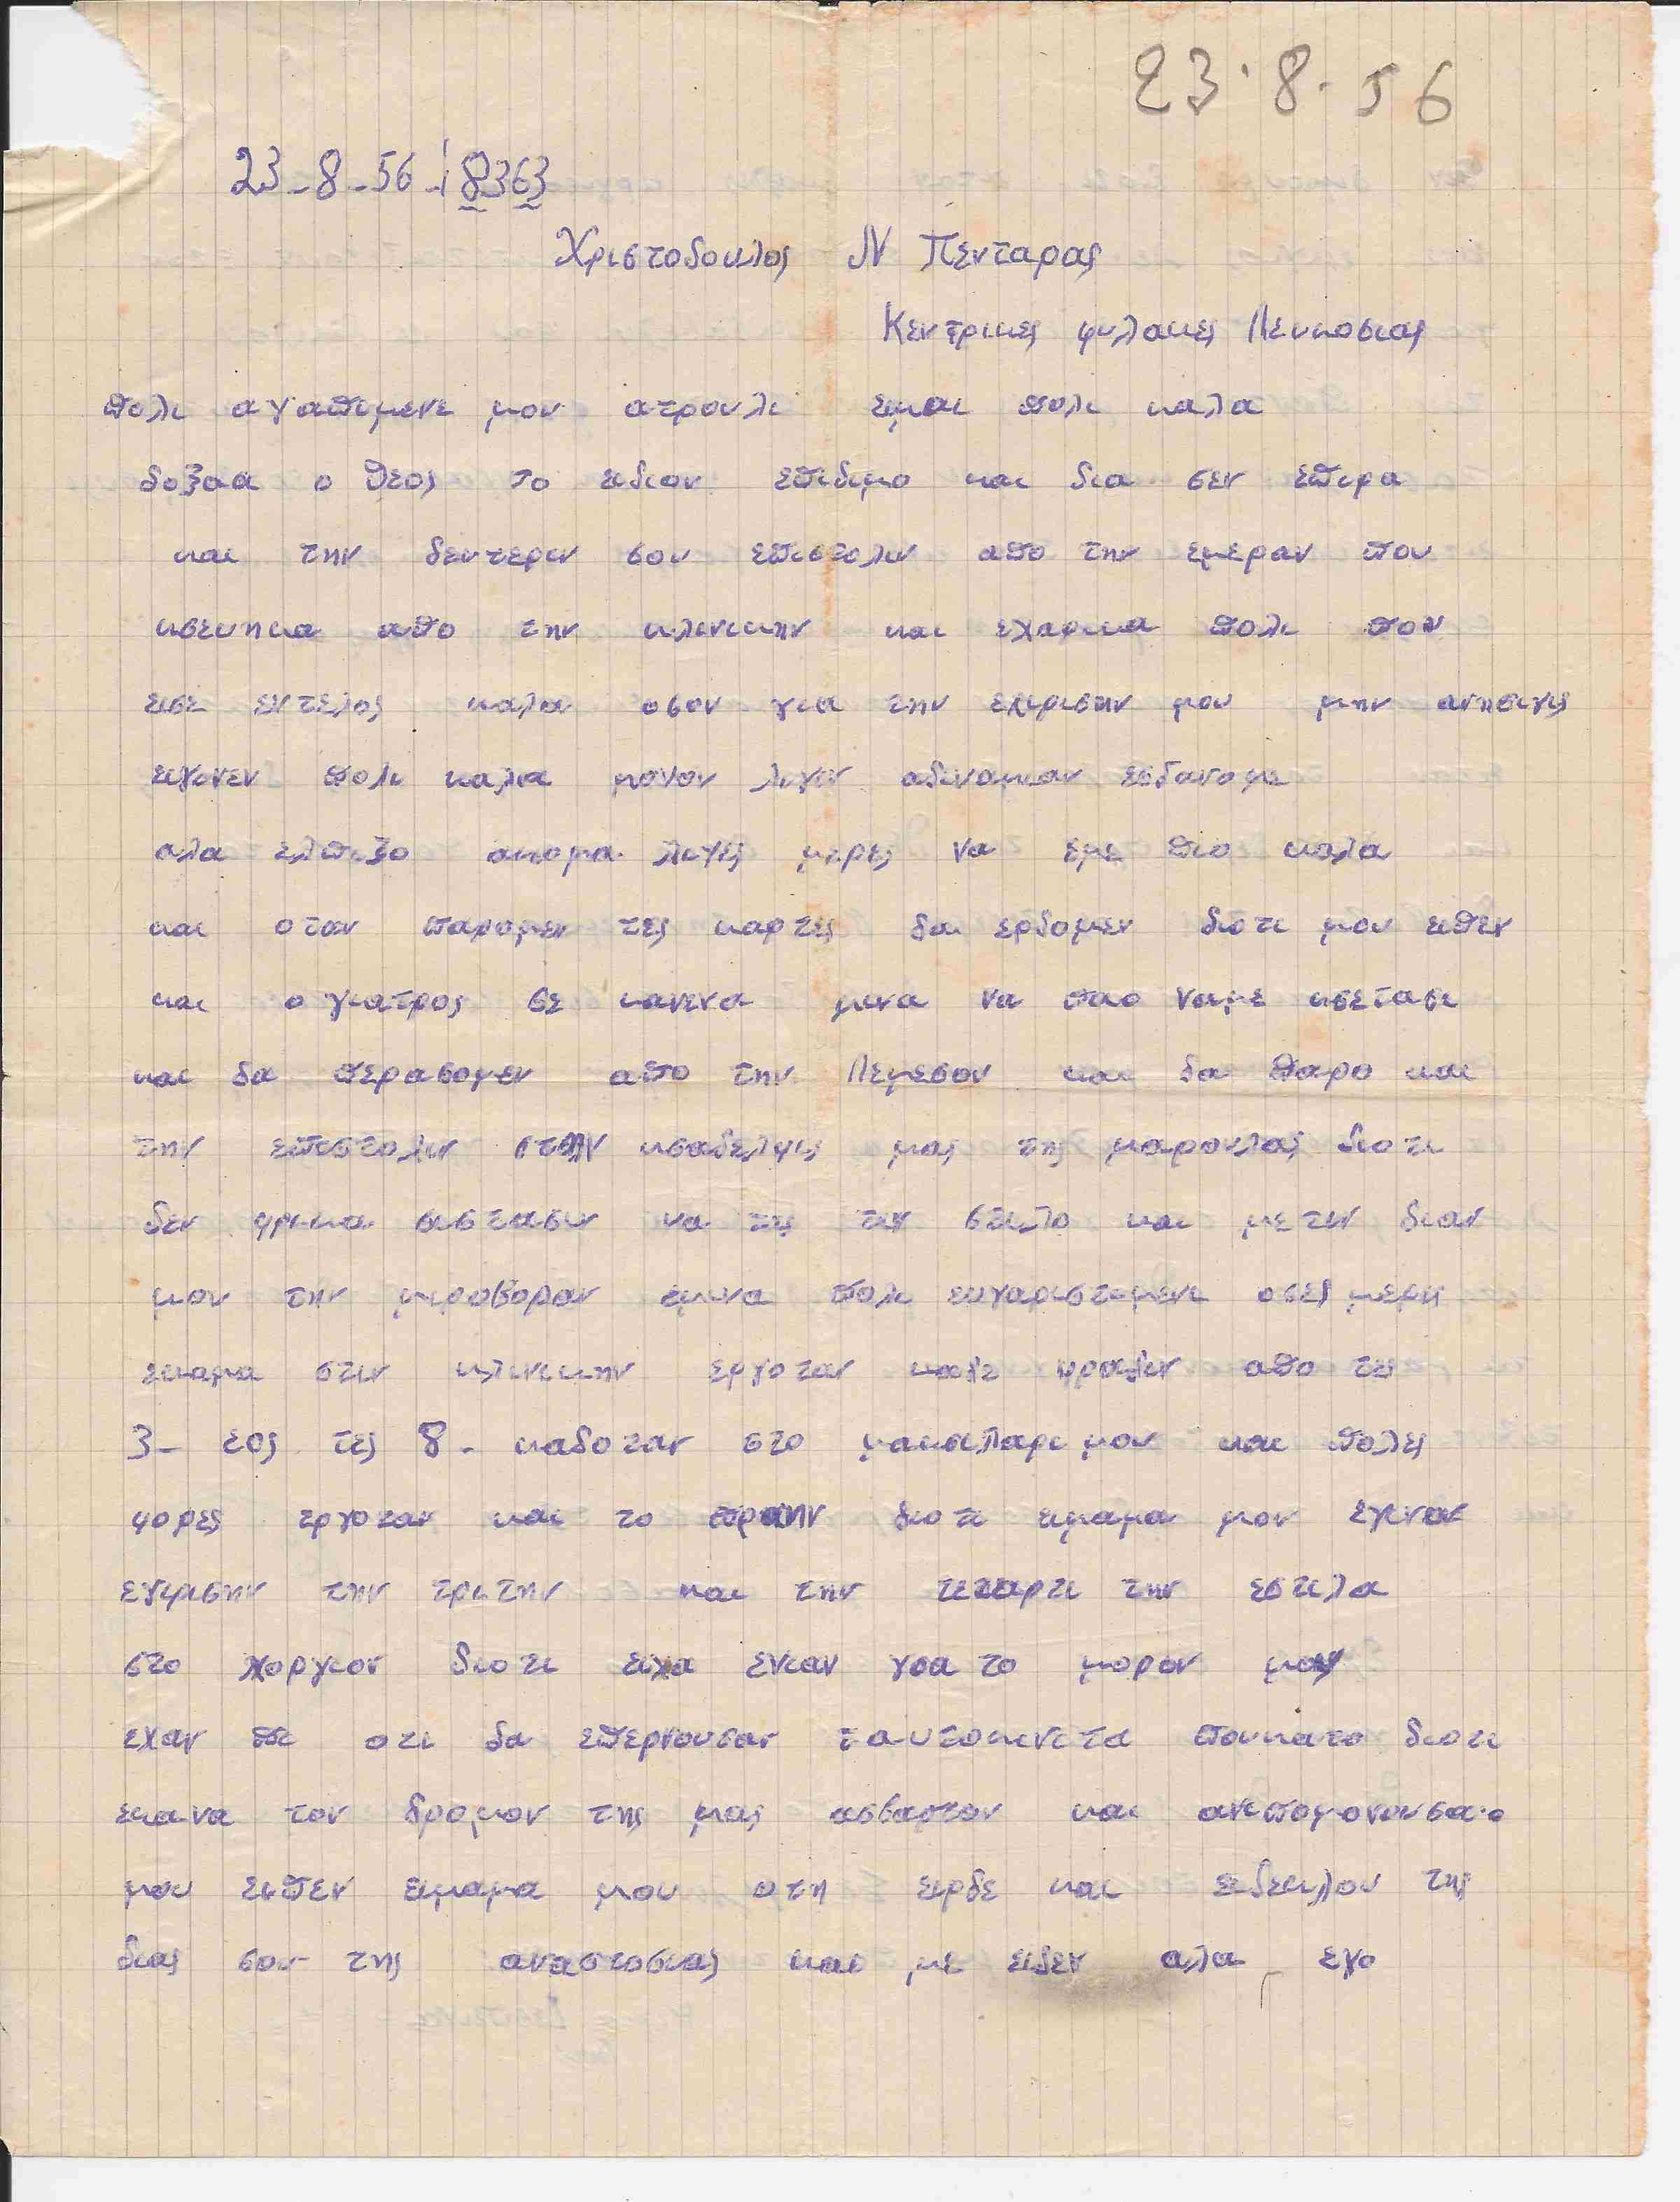 23.8.56
23-8-56-18363
Χριστοδουλος Ν Πενταρας
Κεντρικες φυλακες Λευκοσιας
πολι αγαπιμενε μου ατρουλι εμαι πολι καλα
δοξασα ο θεος το ειδιον επιδιμο και δια σεν επιρα
και την δευτεριν σου επιστολιν απο την εμεραν που
κσευηκα απο την κλινικην και εχαρικα πολι που
εισε εντελος καλα οσον για την εχιρισην μου μην ανησιχις
ειγινεν πολι καλα μονον λιγιν αδιναμιαν εσθανομε
αλα ελπιζο ακομα λιγες μερες να εμε πιο καλα
και οταν παρομεν τες καρτες θα ερθομεν διοτι μου ειπεν
και ο γιατρος σε κανενα μινα να παο ναμε κσετασι
και θα περασομεν απο την Λεμεσον και θα παρο και
την επιστολιν στην κσαδελφις μας της μαρουλας διοτι
δεν βρικα σιστασιν να της την στιλο και με την θιαν
μου την μιροφοραν εμινα πολι ευχαριστιμενι οσες μερες
εκαμα στιν κλινικην εργοταν καθε βραδιν απο τες
3- εος τες 8- καθοταν στο μακσιλαρι μου και πολες
φορες εργοταν και το πραην διοτι εμαμα μου εγιναν
εγιρισην την τριτην και την τεταρτι την εστιλα
στο χοργιον διοτι ειχα ενιαν γσα το μορον μου
εχαν πι οτι θα επερνουσαν ταυτοκινιτα πουκατο διοτι
εκανα τον δρομον της μας ασβαστον και ανιπομονουσα ο
μου ειπεν εμαμα μου οτη ειρθε και ειδεκλου της
θιας σου της αναστασιας και με ειδεν αλα εγο